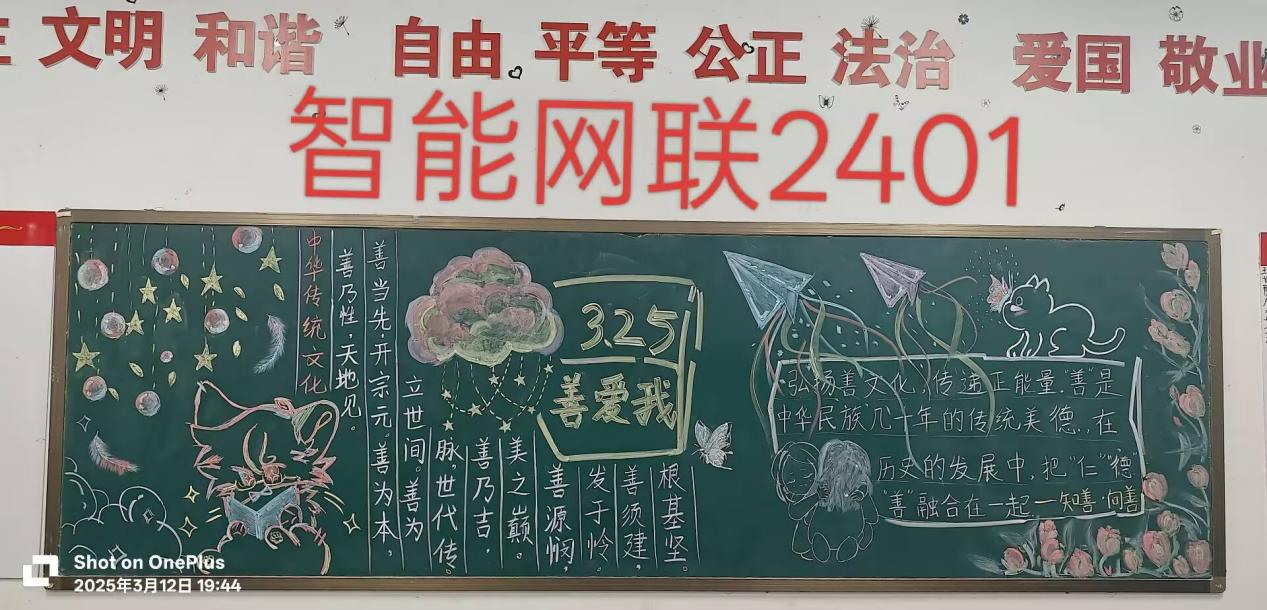 文明 和谐 自由 平等 公正 法治 爱国 敬业
智能网联2401
中华传统文化
善乃性,天地见。
善当先,开宗元。善为本,
立世间。善为
脉,世代传。
善乃吉,
美之巅。
善源悯,
发于怜。
善须建,
根基坚。
3.25
善爱我
弘扬善文化,传递正能量."善"是
中华民族几千年的传统美德.,在
历史的发展中,把"仁""德"
"善"融合在一起.一知善·向善
Shot on OnePlus
2025年3月12日 19:44